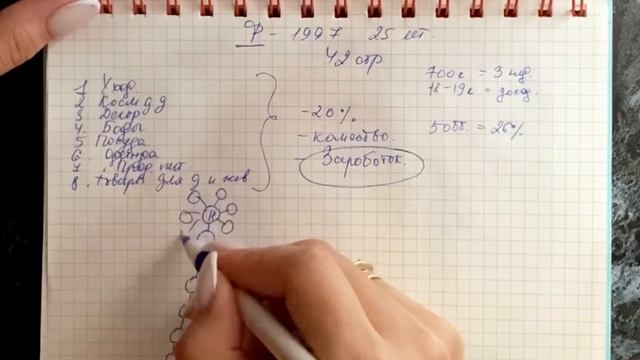 Ф - 1997 25 лет.
42 стр
700 е = 3 нед.
18-19 е = доход.
1 Уход
2 Косм д д
3. Декор
4. Бады
5 Посуда
6.
7. Прод пит
8. товары для д и жив
- 20%
- качество.
- Зароботок.
= 26%
Н